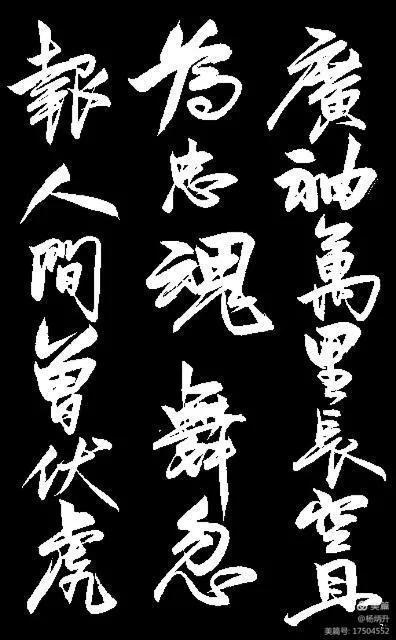 廣袖萬里長空且
為忠魂舞忽
報人間曾伏虎
美篇
@杨炳升
美篇号: 17504552